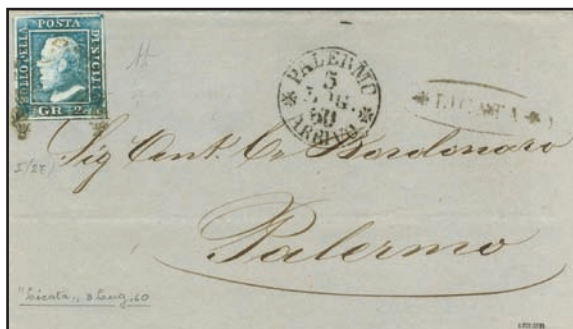 BOLLO DELLA POSTA DI SICILIA
GR 2
PALERMO
5
LUG.
60
ARRIVO
LICATA
Sig Ant. Bordonaro
Palermo
"Licata,, 3 Lug. 60